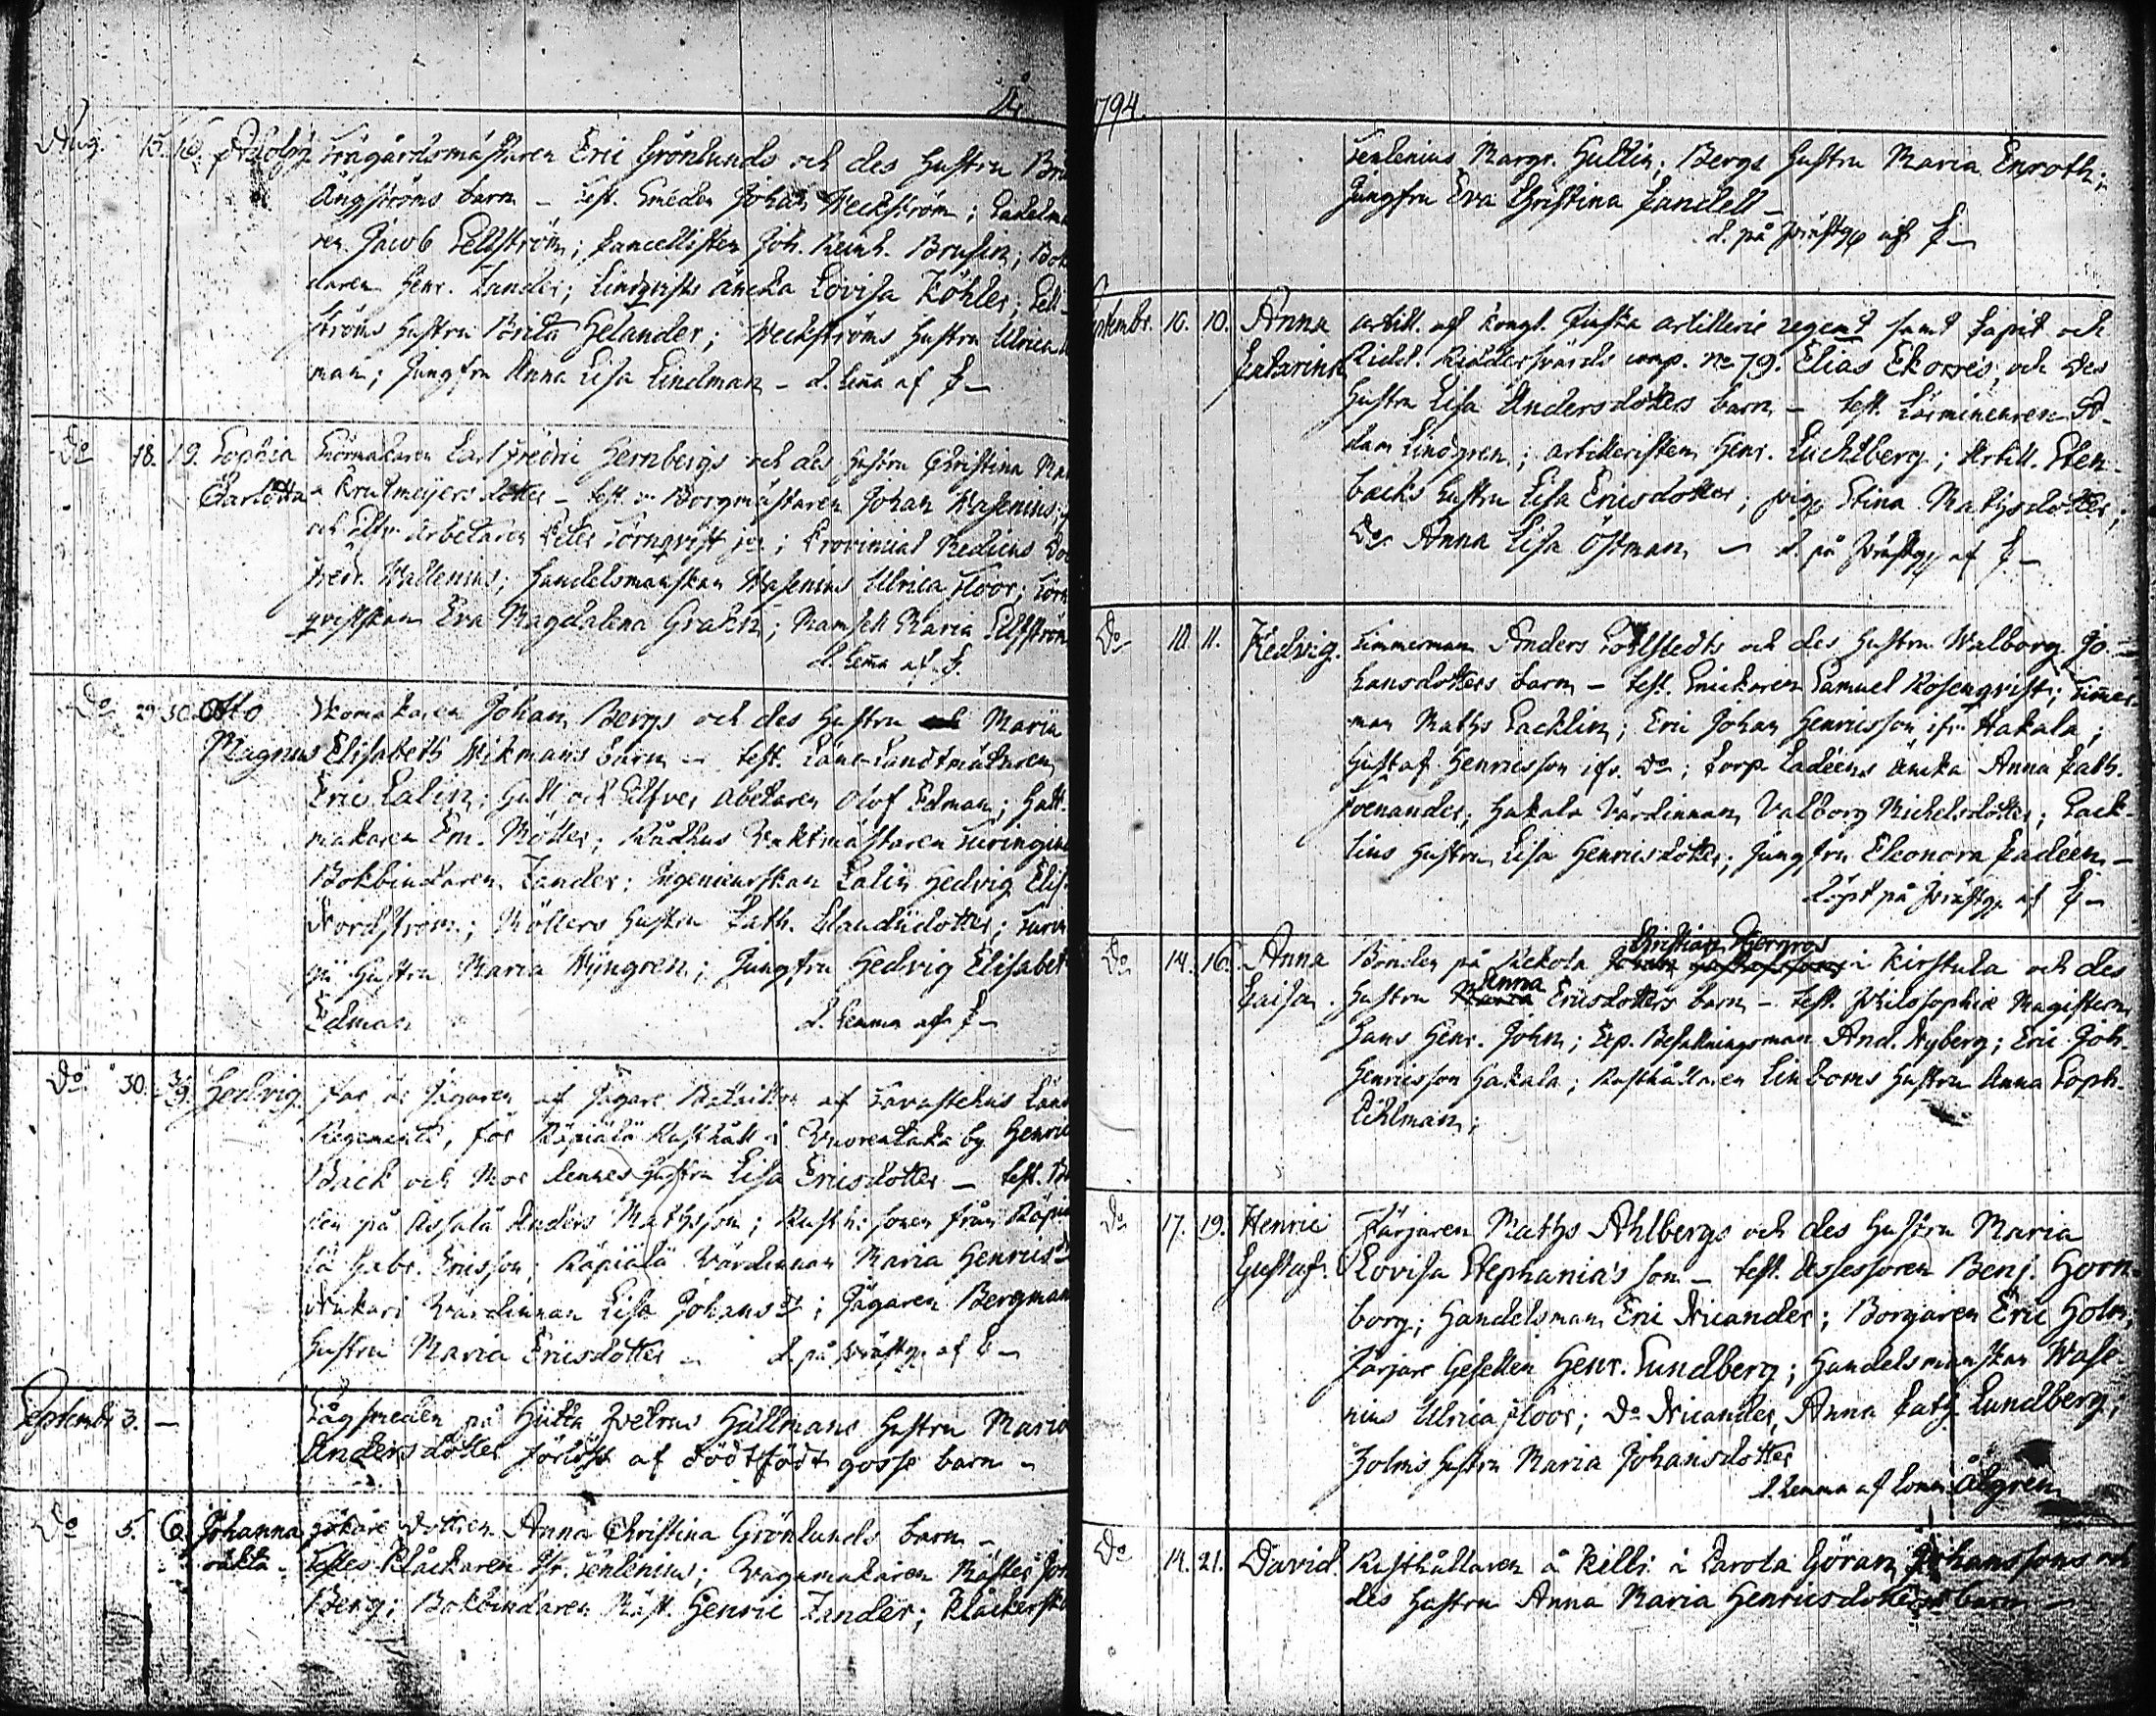 År
Aug. 15. 16. Adolph. Trägårdsmästaren Eric Grönlunds och des hustru
Ängströms barn – test. Smeden Johan Weckström;
ren Jacob Sellström; Cancellisten Joh. Reinh. Brusin;
daren Henr. Zander; Lindqvists äncka Lovisa Köhler; Sell-
ströms hustru Brita Helander; Weckströms hustru Ulrica
man; Jungfru Anna Lisa Lindman – d. hema af C –
Do 18. 19. Sophia Snörmakaren Carl Fredric Hernbergs och des hustru Christina
Carlotta Krutmeijers dotter – test. Borgmästaren Johan Wasenius;
och Silfv. Arbetaren Peter Törnqvist; Provincial Medicus
Fredr. Wallenius; Handelsmanskan Wasenius Ulrica Floor;
qvistskan Eva Magdalena Grahn; Mamsell Maria Ellström
d. hema af C.
Do 29. 30. Otto Skomakaren Johan Bergs och des hustru Maria
Magnus Elisabeth Wikmans barn – test. Läne-Landtmätaren
Eric Calin; Gull och Silfver Abetaren Olof Edman; Hatt-
makaren Em. Möller; Rådhus Vaktmästaren Turingius
Bokbindaren Zander; Ingenieurskan Calin Hedvig Elis.
Nordström; Möllers hustru Cath. Claudiidotter;
gii hustru Maria Wijngren; Jungfru Hedvig Elisabet
Edman d. hemma af C –
Do 30. Hedvig. Far är Jägaren af Jägare Bataillon af Tavastehus Läns
Regemente, för Räpiälä Rusthåll i Vuorentaka by Henric
Back och Mor dennes hustru Lisa Ericsdotter – test.
den på Assala Anders Mathsson; Rusth: sonen från
lä Gabr. Ericsson; Räpiälä Värdinnan Maria Henricsd
Värdinnan Lisa Johansdr; Jägaren Bergmans
hustru Maria Ericsdotter – d. på prästg. af C –
Septembr 3. – Sågsmeden på Hyttä Petrus Hällmans hustru Maria
Andersdotter förlöst af dödtfödt gosse barn –
Do 5. 6. Johanna Pigan Anna Christina Grönlunds barn –
oäkta. Testes Klåckaren Fr. Tenlenius; Vagnmakaren Mäster
Berg; Bokbindaren Mäst. Henric Zander; Klåckarsk
1794.
Tenlenius Margr. Hullin; Bergs hustru Maria Enroth;
Jungfru Eva Christina Candell –
d. på prästg. af C –
Septembr. 10. 10. Anna Artill. af Kongl. Finska Artillerie regemt samt Capit och
Catarina Ridd. comp. No 79. Elias Ekorres, och Des
hustru Lisa Andersdotters barn – test. A-
dam Lindgren; artilleristen Henr. Luchtberg; Artill. Sten-
backs hustru Lisa Ericsdotter; pig. Stina Mathsdotter;
Do Anna Lisa Östman – d. på prästg. af C –
Do 10. 11. Hedvig. Timmerman Anders Pohlstedts och des hustru Walborg Jo-
hansdotters barn – test. Snickaren Samuel Rosenqvist; Timer-
man Maths Lacklin; Eric Johan Henricsson ifr. Hakala;
Gustaf Henricsson ifr. Do; Corp. Ladéens äncka Anna Cath.
Foenander; Hakala Värdinnan Valborg Michelsdotter; Lack-
lins hustru Lisa Henricsdotter; Jungfru Eleonora Ladéen –
döpt på prästg. af C –
Christian Stjernros
Do 14. 16. Anna Bonden på Pickola i Kirstula och des
Anna
Caisa. hustru Maria Ericsdotters barn – test. Philosophiæ Magistern
Hans Henr. John; Exp. Befallningsman And. Nyberg; Eric Joh.
Henricsson Hakala; Rusthållaren Linboms hustru Anna Soph.
Öhlman;
Do 17. 19. Henric Färjaren Maths Ahlbergs och des hustru Maria
Gustaf. Lovisa Stephania's son – test. Assessoren Benj. Horn-
borg; Handelsman Eric Nicander; Borgaren Eric Holm,
Färjare Gesellen Henr. Lundberg; Handelsmanskan Wase-
nius Ulrica Floor; Do Nicander, Anna Cath Lundberg;
Holms hustru Maria Johansdotter
d. hemma af Com. Ålgren
Do 14. 21. David. Rusthållaren å Killi i Parola Göran Johanssons och
des hustru Anna Maria Henricsdotters barn –